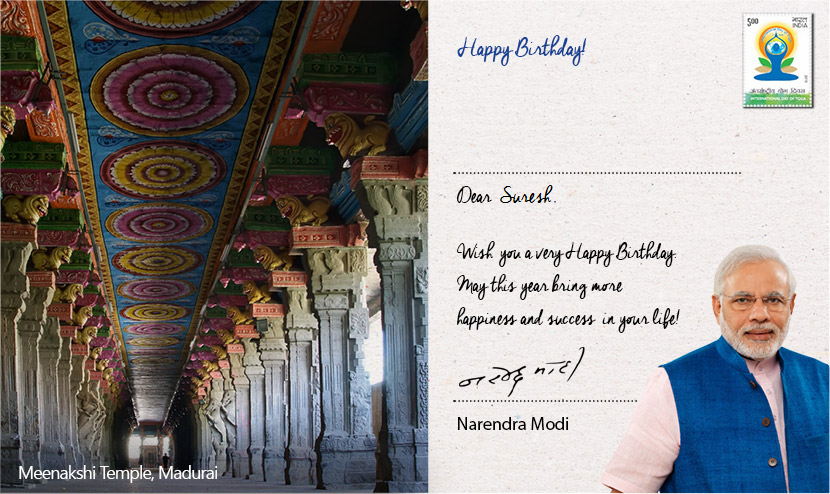 Happy Birthday!
5.00
भारत
INDIA
2015
अंतर्राष्ट्रीय योग दिवस
INTERNATIONAL DAY OF YOGA
Dear Suresh,
Wish you a very Happy Birthday.
May this year bring more
happiness and success in your life!
नरेन्द्र मोदी
Narendra Modi
Meenakshi Temple, Madurai